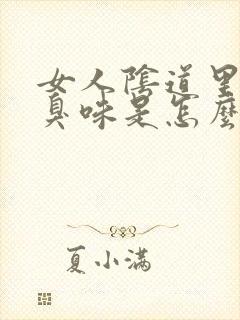 女人陰道里
臭味是怎麼
夏小满